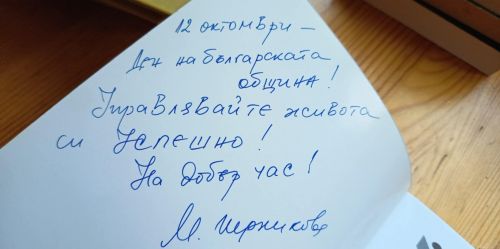 12 октомври –
Ден на българската
община!
Управлявайте живота
си успешно!
На добър час!
М.